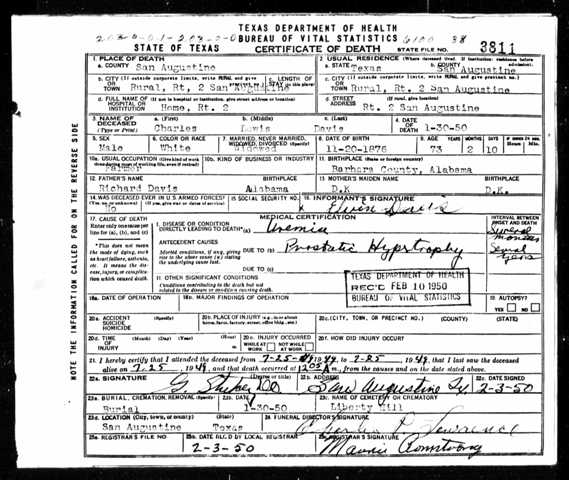 TEXAS DEPARTMENT OF HEALTH
BUREAU OF VITAL STATISTICS
STATE OF TEXAS
CERTIFICATE OF DEATH
STATE FILE NO. 3811
38
1. PLACE OF DEATH
a. COUNTY San Augustine
2. USUAL RESIDENCE (Where deceased lived. If institution: residence before admission).
a. STATE Texas
b. COUNTY San Augustine
b. CITY (If outside corporate limits, write RURAL and give
OR TOWN Rural, Rt, 2 San Augustine
c. LENGTH OF STAY
c. CITY (If outside corporate limits, write RURAL and give precinct no.)
OR TOWN Rural, Rt. 2 San Augustine
d. FULL NAME OF (If not in hospital or institution, give street address or location)
HOSPITAL OR INSTITUTION Home, Rt. 2
d. STREET ADDRESS (If rural, give location)
Rt. 2 San Augustine
3. NAME OF DECEASED (Type or Print)
a. (First) Charles
b. (Middle) Lewis
c. (Last) Davis
4. DATE OF DEATH 1-30-50
5. SEX Male
6. COLOR OR RACE White
7. MARRIED, NEVER MARRIED, WIDOWED, DIVORCED (Specify) Widowed
8. DATE OF BIRTH 11-20-1876
9. AGE YEARS 73 MONTHS 2 DAYS 10
10a. USUAL OCCUPATION (Give kind of work done during most of working life, even if retired)
Farmer
10b. KIND OF BUSINESS OR INDUSTRY
11. BIRTHPLACE (State or foreign country)
Barbara County, Alabama
12. FATHER'S NAME BIRTHPLACE
Richard Davis Alabama
13. MOTHER'S MAIDEN NAME BIRTHPLACE
D.K D.K.
14. WAS DECEASED EVER IN U.S. ARMED FORCES?
No
15. SOCIAL SECURITY NO.
16. INFORMANT'S SIGNATURE
x Elvin Davis
17. CAUSE OF DEATH
Enter only one cause per line for (a), (b), and (c)
MEDICAL CERTIFICATION
INTERVAL BETWEEN ONSET AND DEATH
I. DISEASE OR CONDITION DIRECTLY LEADING TO DEATH* (a) Uremia
Several months
* This does not mean the mode of dying, such as heart failure, asthenia, etc. It means the disease, injury, or complication which caused death.
ANTECEDENT CAUSES
Morbid conditions, if any, giving rise to the above cause (a) stating the underlying cause last.
DUE TO (b) Prostatic Hypertrophy
Several years
DUE TO (c)
II. OTHER SIGNIFICANT CONDITIONS
Conditions contributing to the death but not related to the disease or condition causing death.
TEXAS DEPARTMENT OF HEALTH
REC'D FEB 10 1950
BUREAU OF VITAL STATISTICS
18a. DATE OF OPERATION
18b. MAJOR FINDINGS OF OPERATION
19. AUTOPSY?
YES NO
20a. ACCIDENT SUICIDE HOMICIDE (Specify)
20b. PLACE OF INJURY (e.g., in or about home, farm, factory, street, office bldg., etc.)
20c. (CITY, TOWN, OR PRECINCT NO.) (COUNTY) (STATE)
20d. TIME OF INJURY (Month) (Day) (Year) (Hour) m.
20e. INJURY OCCURRED WHILE AT WORK NOT WHILE AT WORK
20f. HOW DID INJURY OCCUR?
21. I hereby certify that I attended the deceased from 7-25- 1949, to 7-25, 1949, that I last saw the deceased
alive on 7-25, 1949, and that death occurred at m., from the causes and on the date stated above.
22a. SIGNATURE (Degree or title)
22b. ADDRESS San Augustine Tx.
22c. DATE SIGNED 2-3-50
23a. BURIAL, CREMATION, REMOVAL (Specify) Burial
23b. DATE 1-30-50
23c. NAME OF CEMETERY OR CREMATORY Liberty Hill
23d. LOCATION (City, town, or county) (State)
San Augustine Texas
24. FUNERAL DIRECTOR'S SIGNATURE
25a. REGISTRAR'S FILE NO.
25b. DATE REC'D BY LOCAL REGISTRAR 2-3-50
25c. REGISTRAR'S SIGNATURE
Armstrong
NOTE THE INFORMATION CALLED FOR ON THE REVERSE SIDE